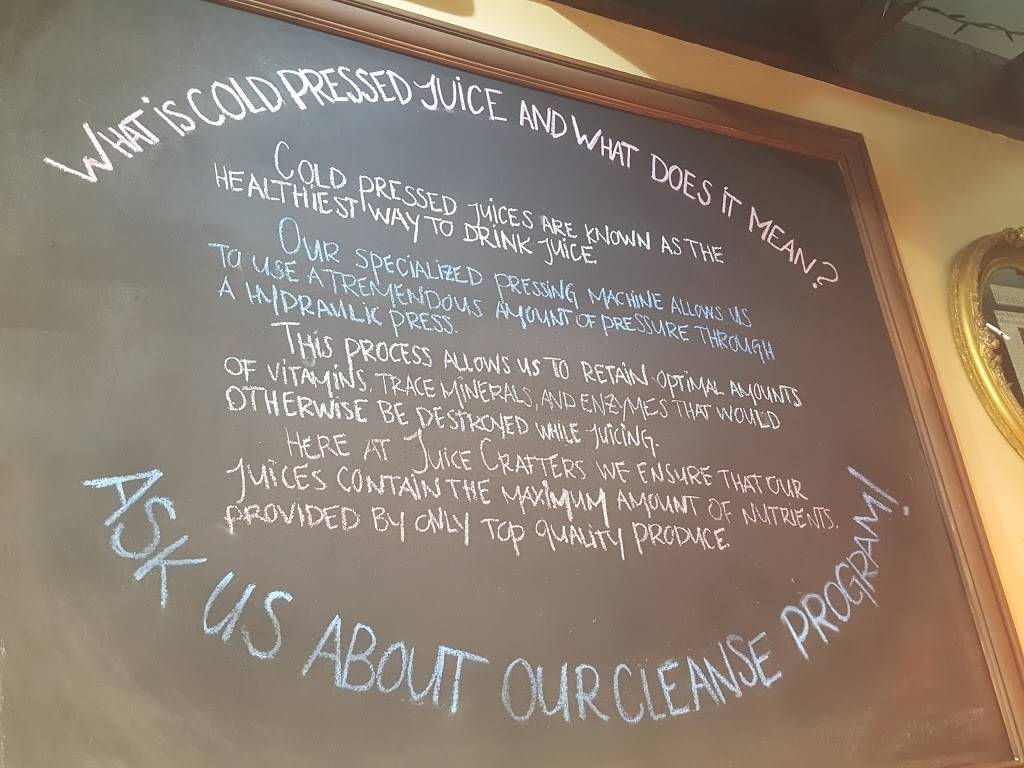 WHAT IS COLD PRESSED JUICE AND WHAT DOES IT MEAN?
COLD PRESSED JUICES ARE KNOWN AS THE
HEALTHIEST WAY TO DRINK JUICE.
OUR SPECIALIZED PRESSING MACHINE ALLOWS US
TO USE A TREMENDOUS AMOUNT OF PRESSURE THROUGH
A HYDRAULIC PRESS.
THIS PROCESS ALLOWS US TO RETAIN OPTIMAL AMOUNTS
OF VITAMINS, TRACE MINERALS, AND ENZYMES THAT WOULD
OTHERWISE BE DESTROYED WHILE JUICING.
HERE AT JUICE CRAFTERS WE ENSURE THAT OUR
JUICES CONTAIN THE MAXIMUM AMOUNT OF NUTRIENTS.
PROVIDED BY ONLY TOP QUALITY PRODUCE
ASK US ABOUT OUR CLEANSE PROGRAM!